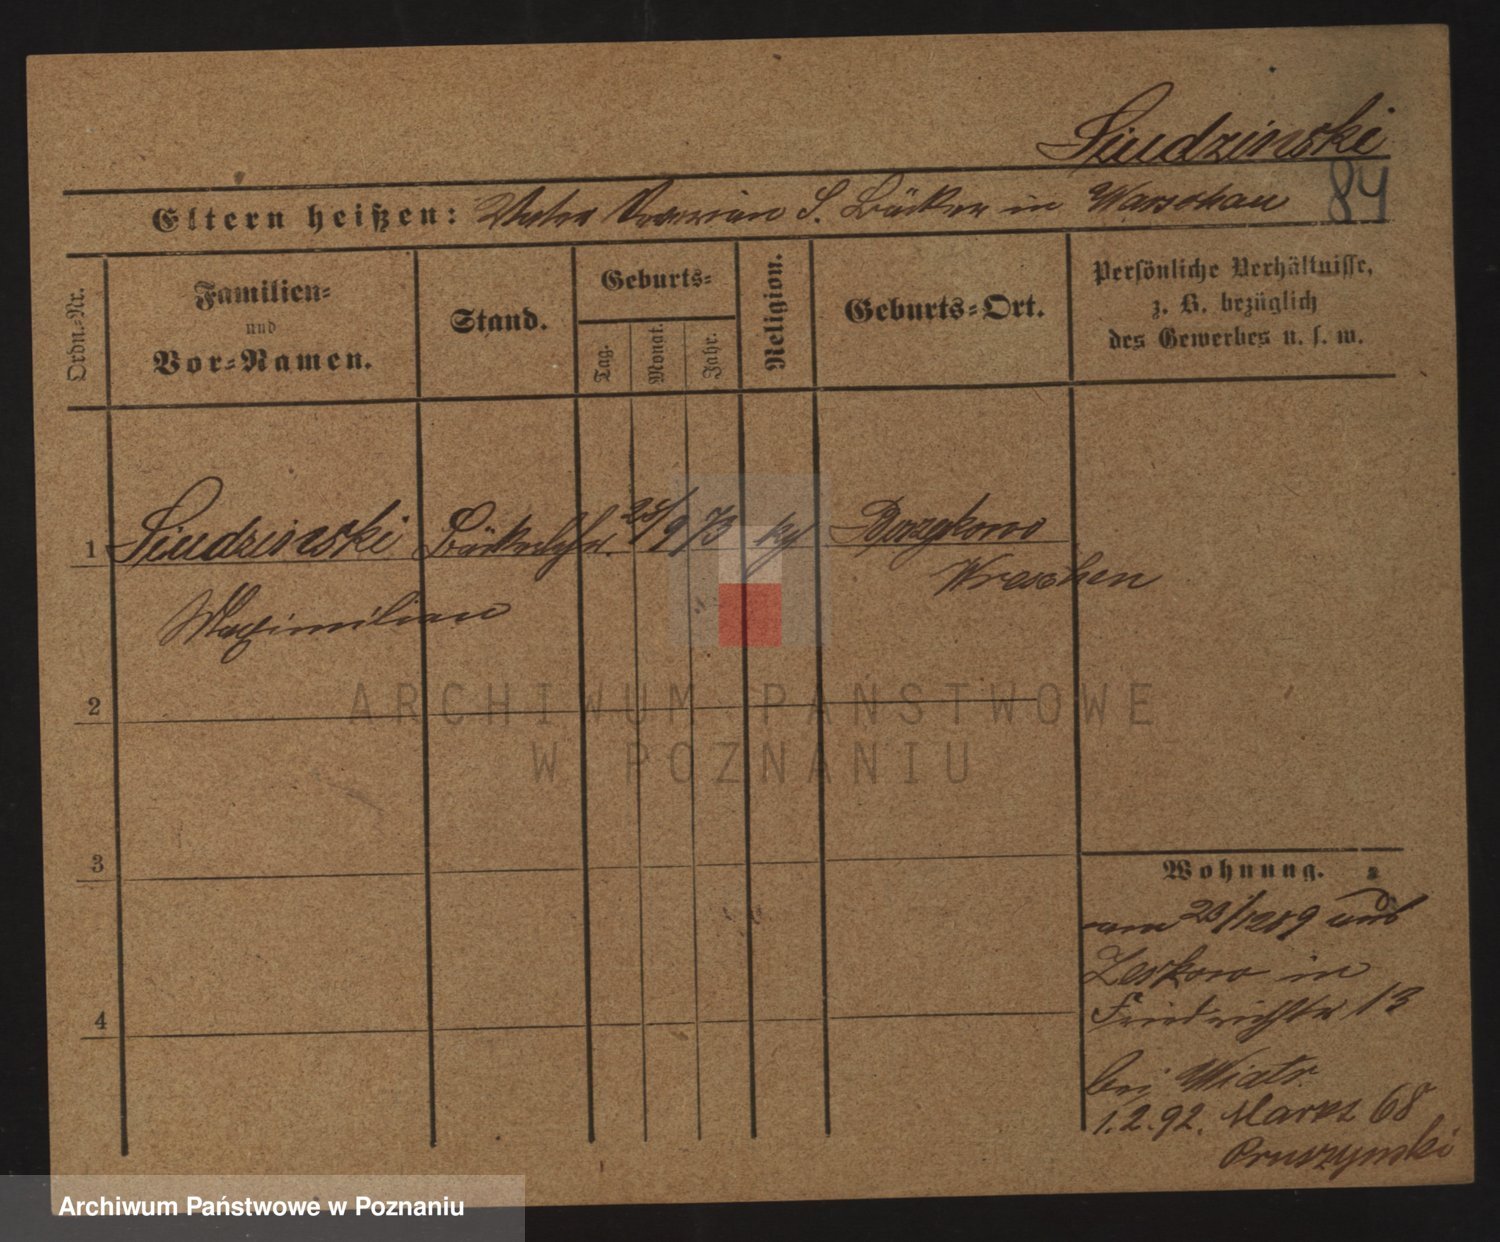 Siudzinski
84
Eltern heißen: Vater S. Bäcker in Warschau
Ordn.-Nr.
Familien-
und
Vor-Namen.
Stand.
Geburts-
Tag.
Monat.
Jahr.
Religion.
Geburts-Ort.
Persönliche Verhältnisse,
z. B. bezüglich
des Gewerbes u. s. w.
1 Siudzinski Bäckerlehr. 25/9 73 kg Borzykowo
Maximilian Wreschen
2
3
4
Wohnung.
vom 23/12 89 aus
Zerkow in
Friedrichstr 13
bei Wiatr
1.2.92. Markt 68
Pruszynski
ARCHIWUM PAŃSTWOWE
W POZNANIU
Archiwum Państwowe w Poznaniu